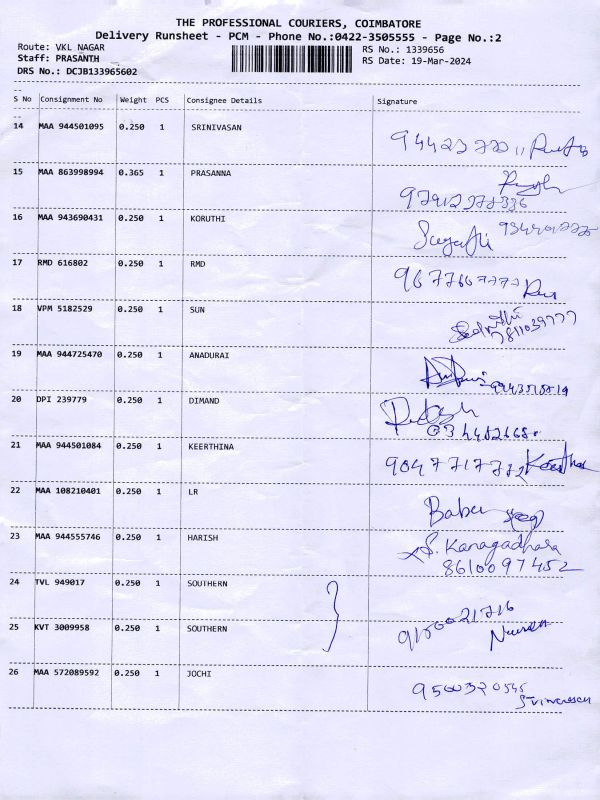 THE PROFESSIONAL COURIERS, COIMBATORE
Delivery Runsheet - PCM - Phone No.:0422-3505555 - Page No.:2
Route: VKL NAGAR RS No.: 1339656
Staff: PRASANTH RS Date: 19-Mar-2024
DRS No.: DCJB133965602
S No Consignment No Weight PCS Consignee Details Signature
14 MAA 944501095 0.250 1 SRINIVASAN
15 MAA 863998994 0.365 1 PRASANNA
16 MAA 943690431 0.250 1 KORUTHI
17 RMD 616802 0.250 1 RMD
18 VPM 5182529 0.250 1 SUN
7811039777
19 MAA 944725470 0.250 1 ANADURAI
20 DPI 239779 0.250 1 DIMAND
21 MAA 944501084 0.250 1 KEERTHINA
22 MAA 108210401 0.250 1 LR
Babu
23 MAA 944555746 0.250 1 HARISH
S. Kanagadhara
8610097452
24 TVL 949017 0.250 1 SOUTHERN
25 KVT 3009958 0.250 1 SOUTHERN
9150021716
26 MAA 572089592 0.250 1 JOCHI
9500320545